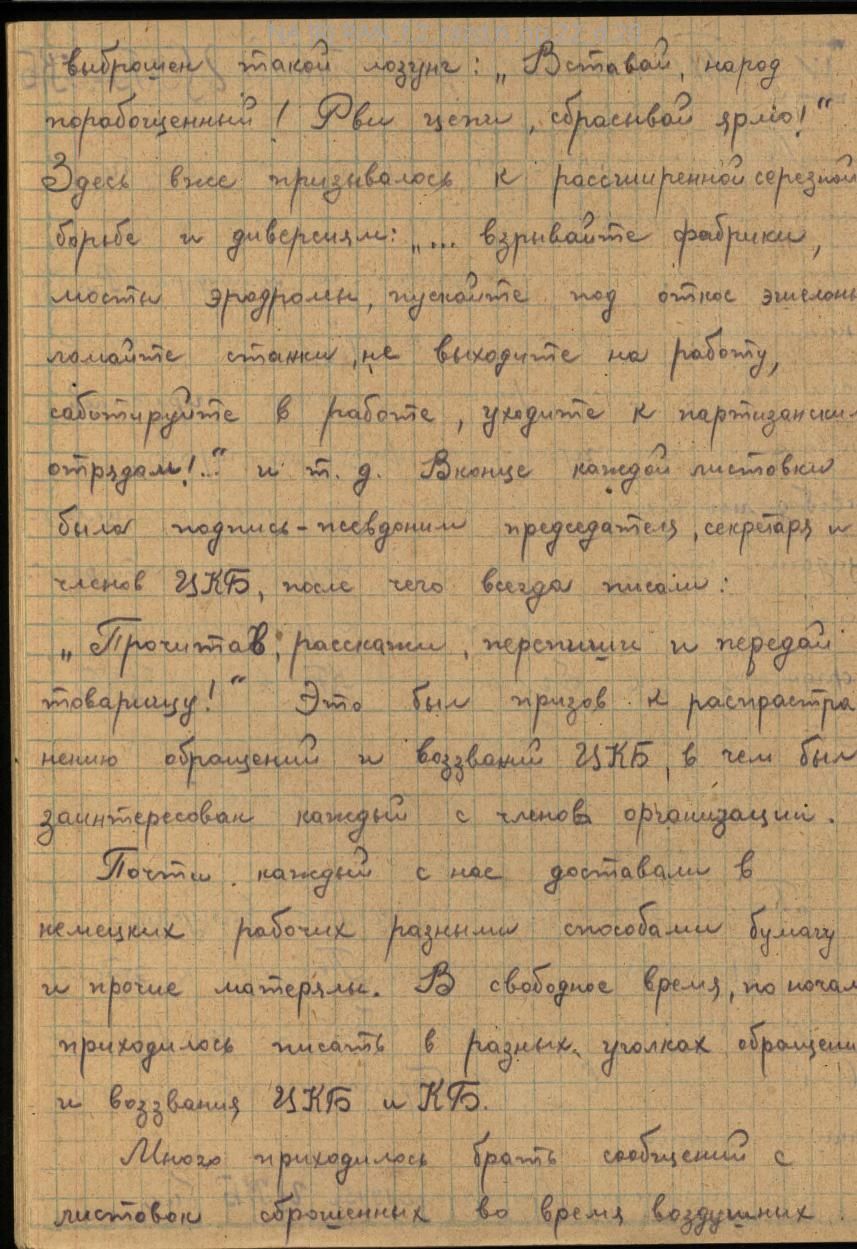 выброшен такой лозунг: „Вставай, народ
порабощенный! Рви цепи, сбрасывай ярмо!“
Здесь вже призывалось к рассширенной серезной
борьбе и диверсиям: „... взрывайте фабрики,
мосты эродромы, пускайте под откос эшелоны
ломайте станки, не выходите на работу,
саботируйте в работе, уходите к партизански
отрядам!..“ и т. д. Вконце каждой листовки
была подпись-псевдоним председателя, секретаря и
членов ЦКБ, после чего всегда писали:
„Прочитав, расскажи, перепиши и передай
товарищу!“ Это был призов к распрастра
нению обращений и воззваний ЦКБ, в чем был
заинтересован каждый с членов организации.
Почти каждый с нас доставали в
немецких рабочих разными способами бумагу
и прочие матерялы. В свободное время, по ночам
приходилось писать в разных уголках обращени
и воззвания ЦКБ и КБ.
Много приходилось брать сообщений с
листовок сброшенных во время воздушных